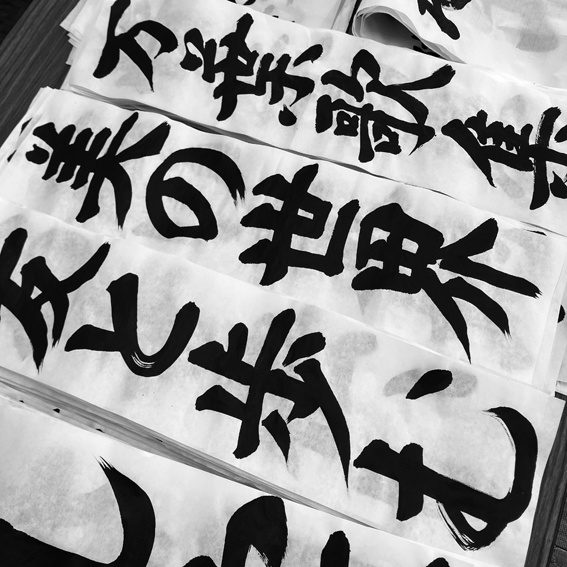 万葉歌集
美の世界
友と歩む